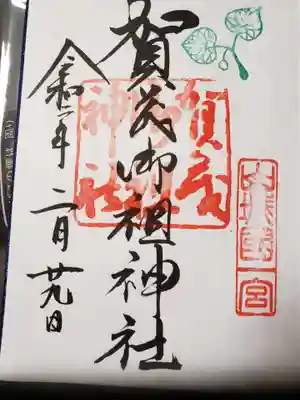 山城國一宮
賀茂御祖神社
賀茂
神社
令和二年 二月 廿九日